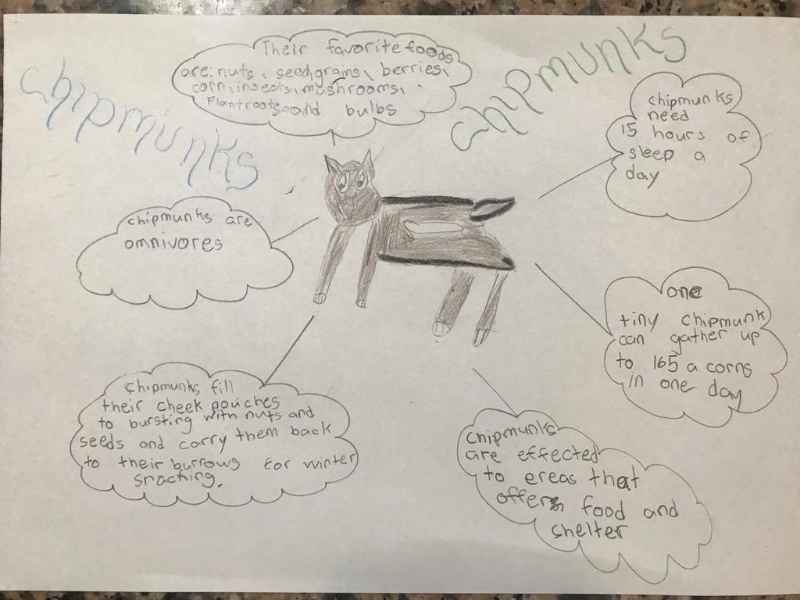 chipmunks
chipmunks
Their favorite foods
are: nuts, seed, grains, berries,
corn, insects, mushrooms,
Plantroots and bulbs
chipmunks
need
15 hours of
sleep a
day
chipmunks are
omnivores
one
tiny chipmunk
can gather up
to 165 a corns
in one day
chipmunks fill
their cheek pouches
to bursting with nuts and
seeds and carry them back
to their burrows for winter
snaching.
chipmunks
are effected
to ereas that
offers food and
shelter